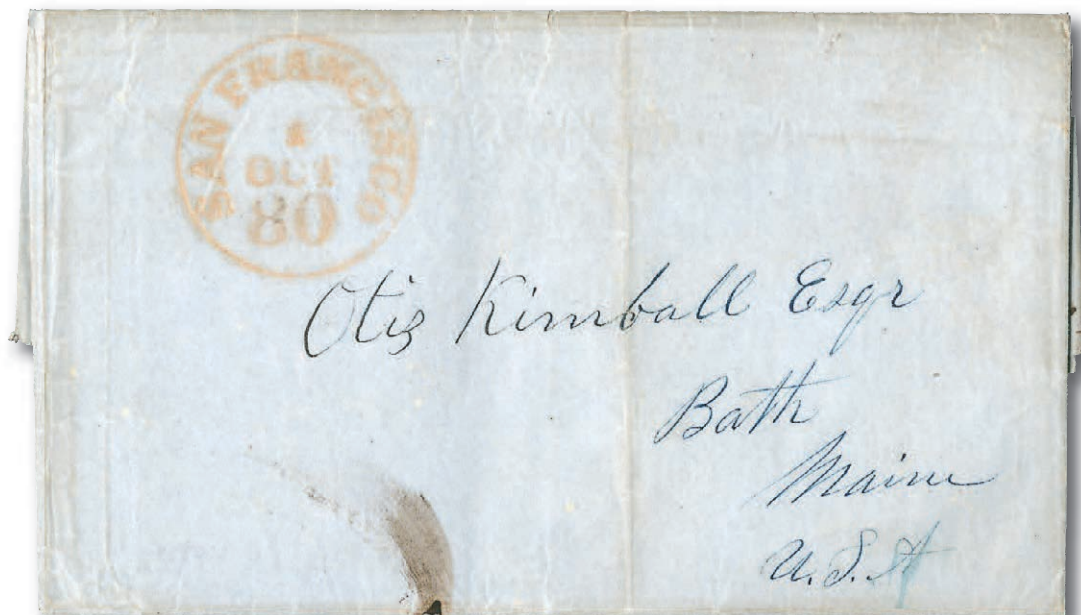 SAN FRANCISCO
1
OCT
80
Otis Kimball Esqr
Bath
Maine
U.S.A